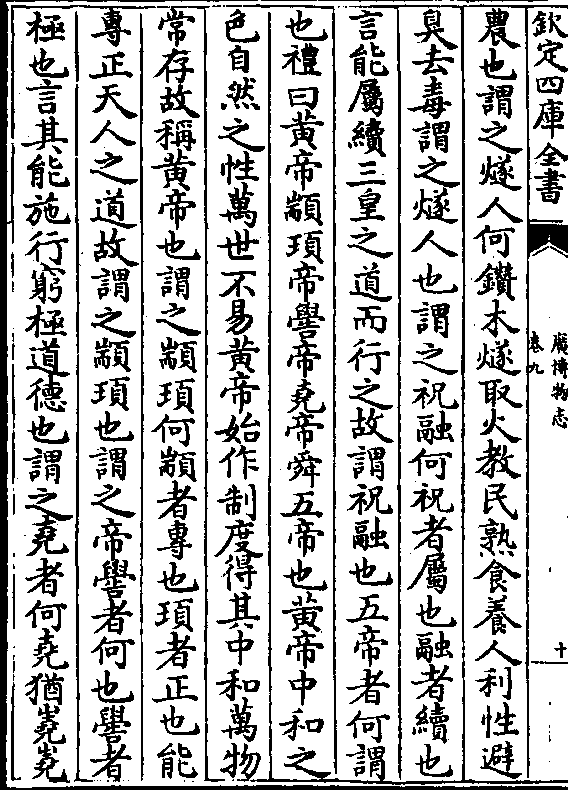 欽定四庫全書
廣博物志
卷九
十
農也謂之燧人何鑽木燧取火教民熟食養人利性避
臭去毒謂之燧人也謂之祝融何祝者屬也融者續也
言能屬續三皇之道而行之故謂祝融也五帝者何謂
也禮曰黃帝顓頊帝嚳帝堯帝舜五帝也黃帝中和之
色自然之性萬世不易黃帝始作制度得其中和萬物
常存故稱黃帝也謂之顓頊何顓者專也頊者正也能
專正天人之道故謂之顓頊也謂之帝嚳者何也嚳者
極也言其能施行窮極道德也謂之堯者何堯猶嶤嶤